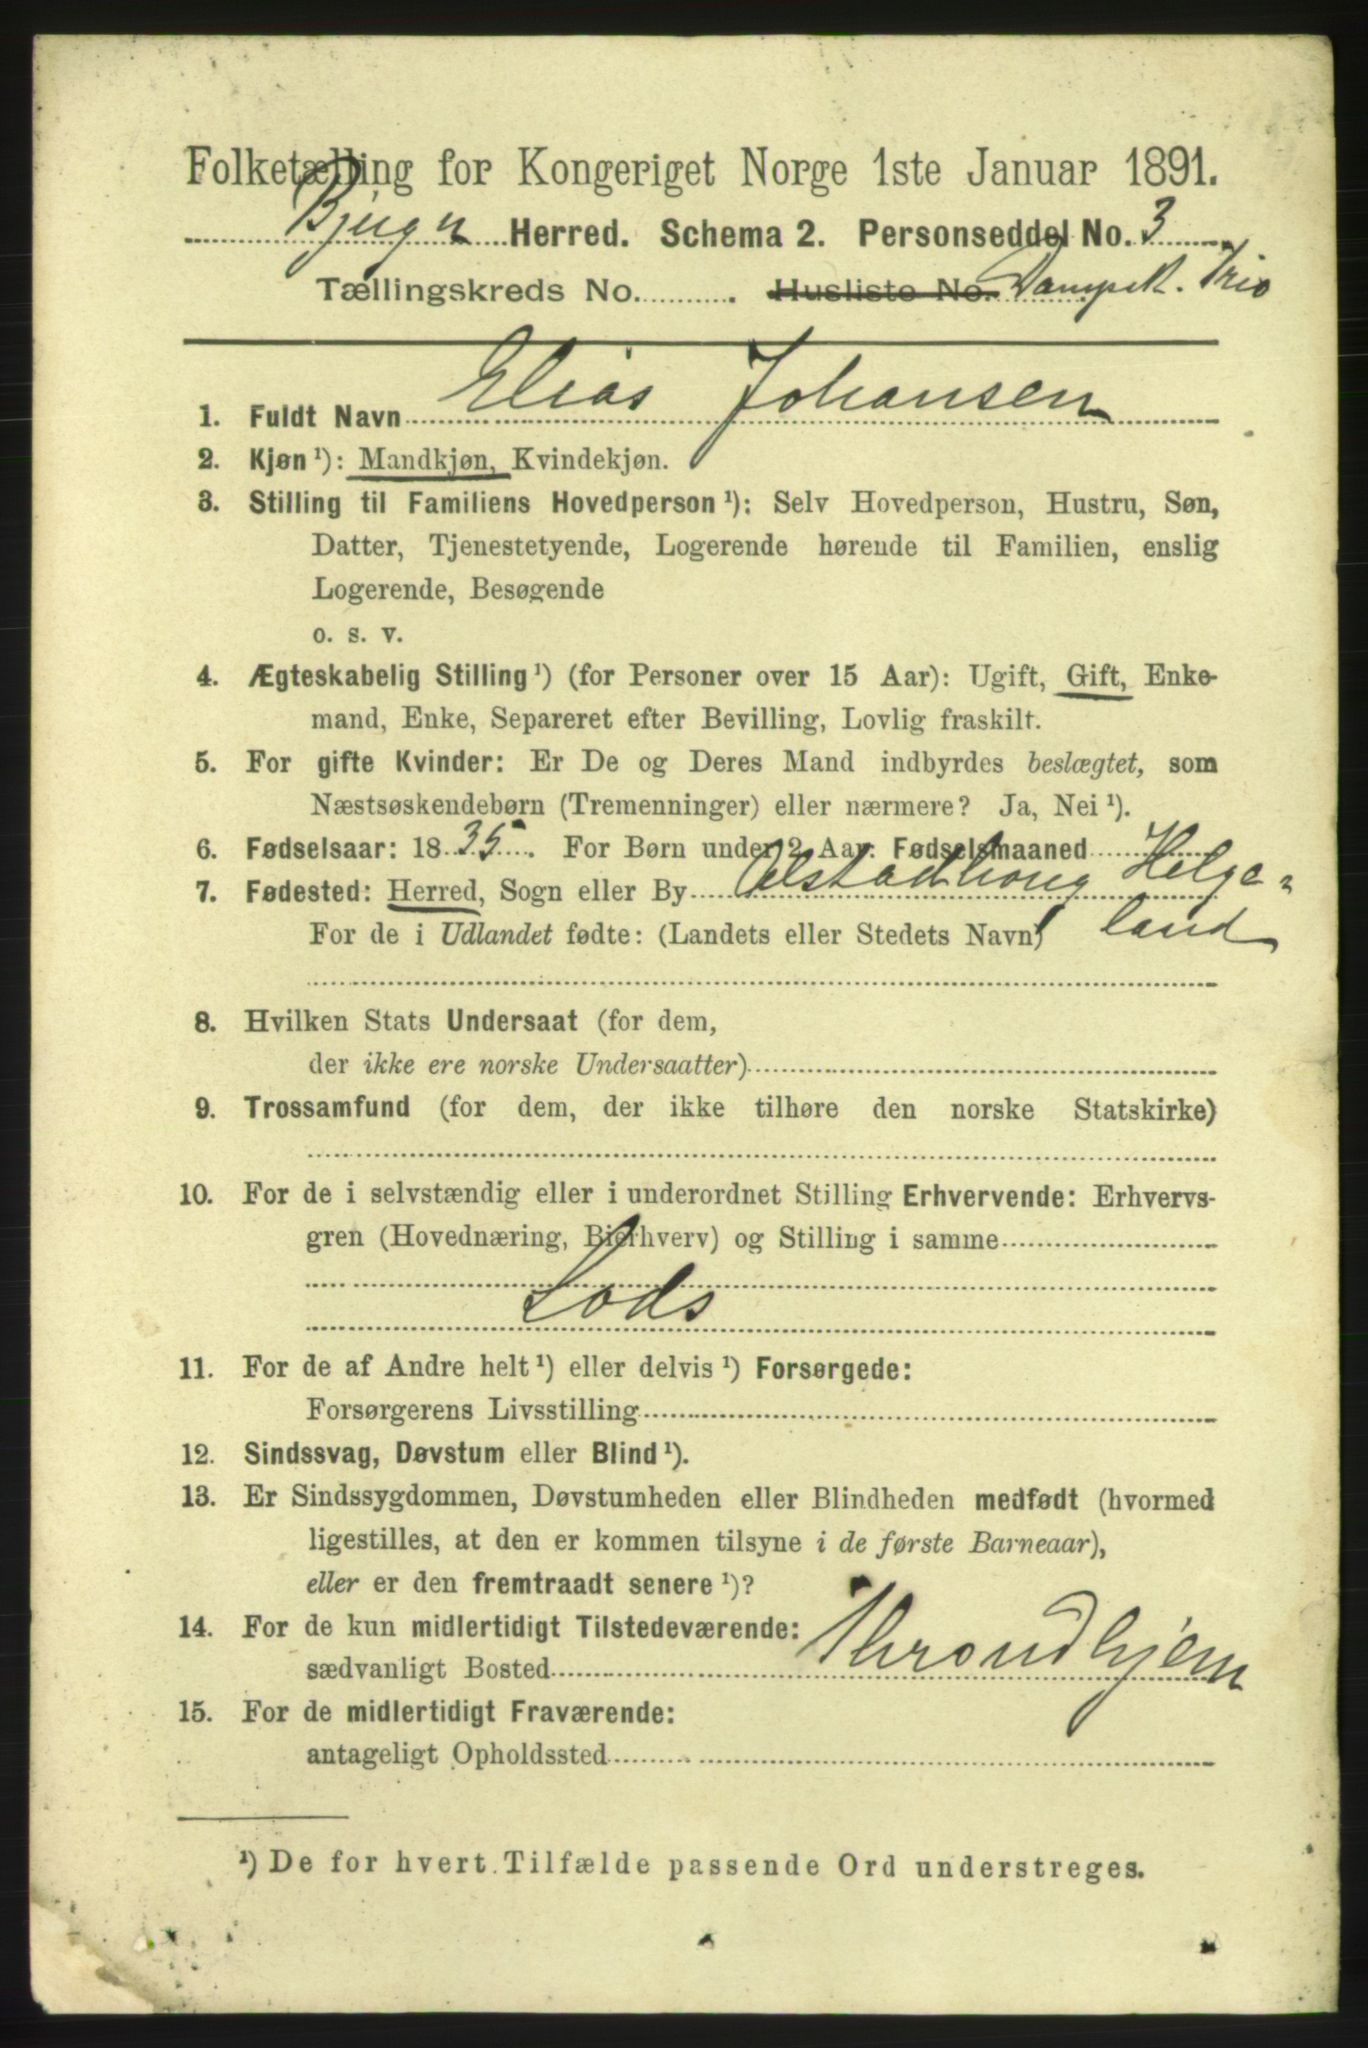 Folketælling for Kongeriget Norge 1ste Januar 1891.
Bjugn Herred. Schema 2. Personseddel No. 3
Tællingskreds No. . Husliste No. Dampsk. Trio
1. Fuldt Navn Elias Johansen
2. Kjøn ¹): Mandkjøn, Kvindekjøn.
3. Stilling til Familiens Hovedperson ¹): Selv Hovedperson, Hustru, Søn,
Datter, Tjenestetyende, Logerende hørende til Familien, enslig
Logerende, Besøgende
o. s. v.
4. Ægteskabelig Stilling ¹) (for Personer over 15 Aar): Ugift, Gift, Enke-
mand, Enke, Separeret efter Bevilling, Lovlig fraskilt.
5. For gifte Kvinder: Er De og Deres Mand indbyrdes beslægtet, som
Næstsøskendebørn (Tremenninger) eller nærmere? Ja, Nei ¹).
6. Fødselsaar: 1835. For Børn under 2 Aar: Fødselsmaaned
7. Fødested: Herred, Sogn eller By Alstadhoug Helge-
For de i Udlandet fødte: (Landets eller Stedets Navn) land
8. Hvilken Stats Undersaat (for dem,
der ikke ere norske Undersaatter)
9. Trossamfund (for dem, der ikke tilhøre den norske Statskirke)
10. For de i selvstændig eller i underordnet Stilling Erhvervende: Erhvervs-
gren (Hovednæring, Bierhverv) og Stilling i samme
Lods
11. For de af Andre helt ¹) eller delvis ¹) Forsørgede:
Forsørgerens Livsstilling
12. Sindssvag, Døvstum eller Blind ¹).
13. Er Sindssygdommen, Døvstumheden eller Blindheden medfødt (hvormed
ligestilles, at den er kommen tilsyne i de første Barneaar),
eller er den fremtraadt senere ¹)?
14. For de kun midlertidigt Tilstedeværende:
sædvanligt Bosted Throndhjem
15. For de midlertidigt Fraværende:
antageligt Opholdssted
¹) De for hvert Tilfælde passende Ord understreges.